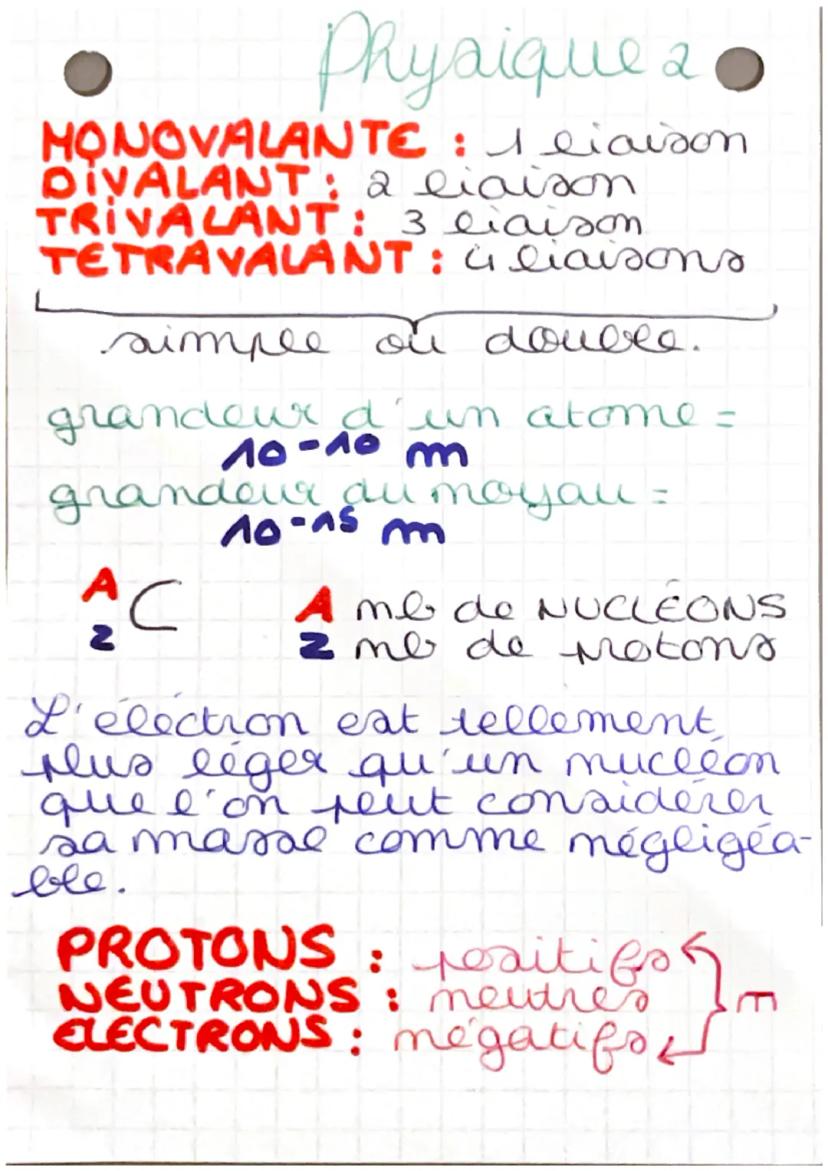 Physique 2
MONOVALANTE : 1 liaison
DIVALANT : 2 liaison
TRIVALANT : 3 liaison
TETRAVALANT : 4 liaisons
simple ou double.
grandeur d'un atome =
10-10 m
grandeur du noyau =
10-15 m
A C A nb de NUCLÉONS
Z Z nb de protons
L'éléctron est tellement
plus léger qu'un nucléon
que l'on peut considérer
sa masse comme négligéa-
ble.
PROTONS : positifs
NEUTRONS : neutres = 
ELECTRONS : négatifs